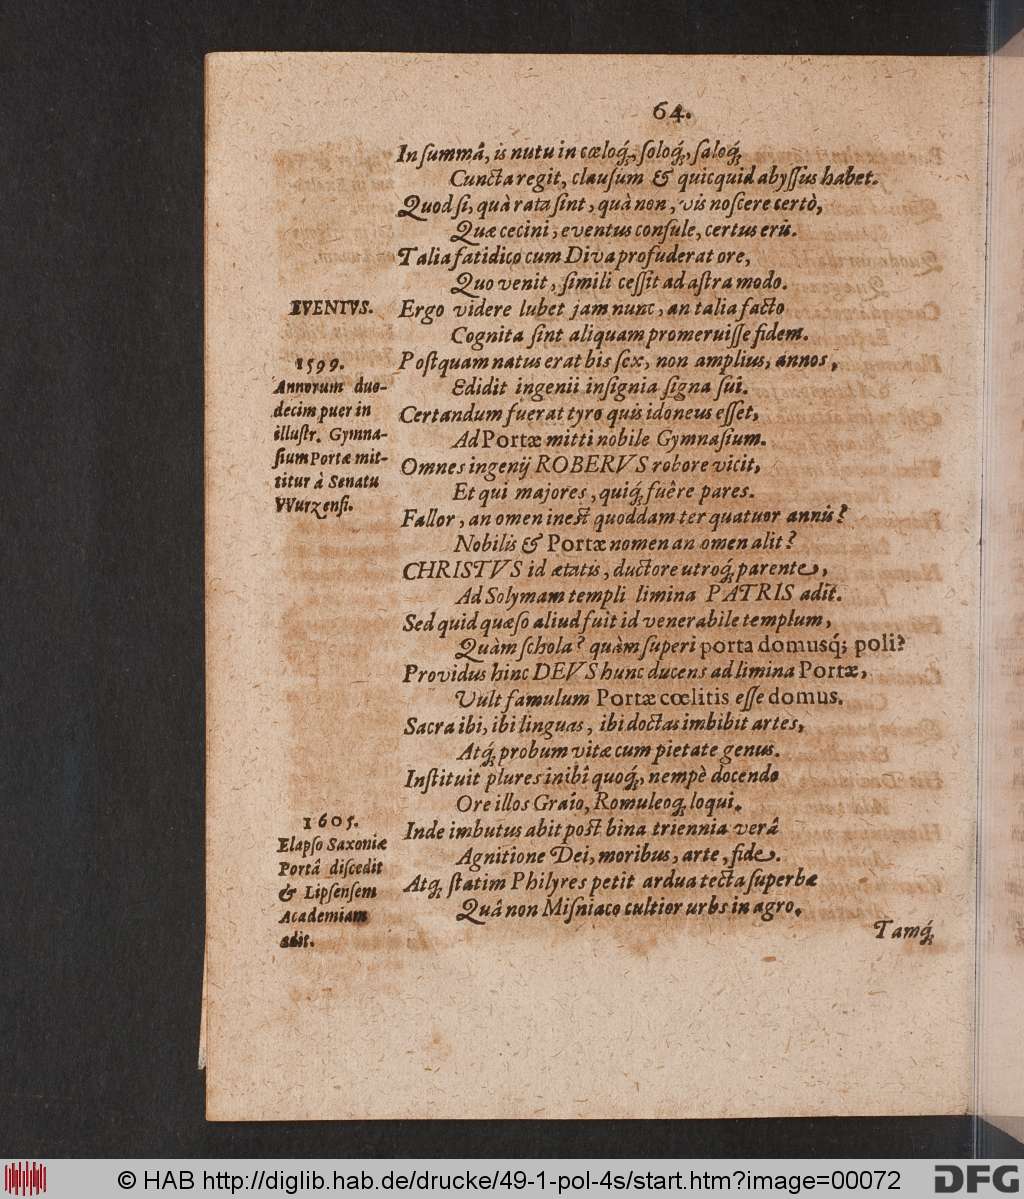 64.
In ſummâ, is nutu in cœloq́;, ſoloq́;, ſaloq́;
Cuncta regit, clauſum & quicquid abyſſus habet.
Quod ſi, quà rata ſint, quà non, vis noſcere certò,
Quæ cecini, eventus conſule, certus eris.
Talia fatidico cum Diva profuderat ore,
Quo venit, ſimili ceſſit ad aſtra modo.
EVENTVS.
Ergo videre lubet jam nunc, an talia facto
Cognita ſint aliquam promeruiſſe fidem.
1599.
Annorum duo-
decim puer in
illuſtr. Gymna-
ſium Portæ mit-
titur à Senatu
VVurzenſi.
Poſtquam natus erat bis ſex, non amplius, annos,
Edidit ingenii inſignia ſigna ſui.
Certandum fuerat tyro quis idoneus eſſet,
Ad Portæ mitti nobile Gymnaſium.
Omnes ingenij ROBERVS robore vicit,
Et qui majores, quiq́; fuêre pares.
Fallor, an omen ineſt quoddam ter quatuor annis?
Nobilis & Portæ nomen an omen alit?
CHRISTVS id ætatis, ductore utroq́; parente,
Ad Solymam templi limina PATRIS adit.
Sed quid quæſo aliud fuit id venerabile templum,
Quàm ſchola? quàm ſuperi porta domusq́; poli?
Providus hinc DEVS hunc ducens ad limina Portæ,
Vult famulum Portæ cœlitis eſſe domus.
Sacra ibi, ibi linguas, ibi doctas imbibit artes,
Atq́; probum vitæ cum pietate genus.
Inſtituit plures inibî quoq́;, nempè docendo
Ore illos Graío, Romuleoq́; loqui.
1605.
Elapſo Saxoniæ
Portâ diſcedit
& Lipſenſem
Academiam
adit.
Inde imbutus abit poſt bina triennia verâ
Agnitione Dei, moribus, arte, fide.
Atq́; ſtatim Philyres petit ardua tecta ſuperbæ
Quâ non Miſniaco cultior urbs in agro.
Tamq́;
© HAB http://diglib.hab.de/drucke/49-1-pol-4s/start.htm?image=00072
DFG